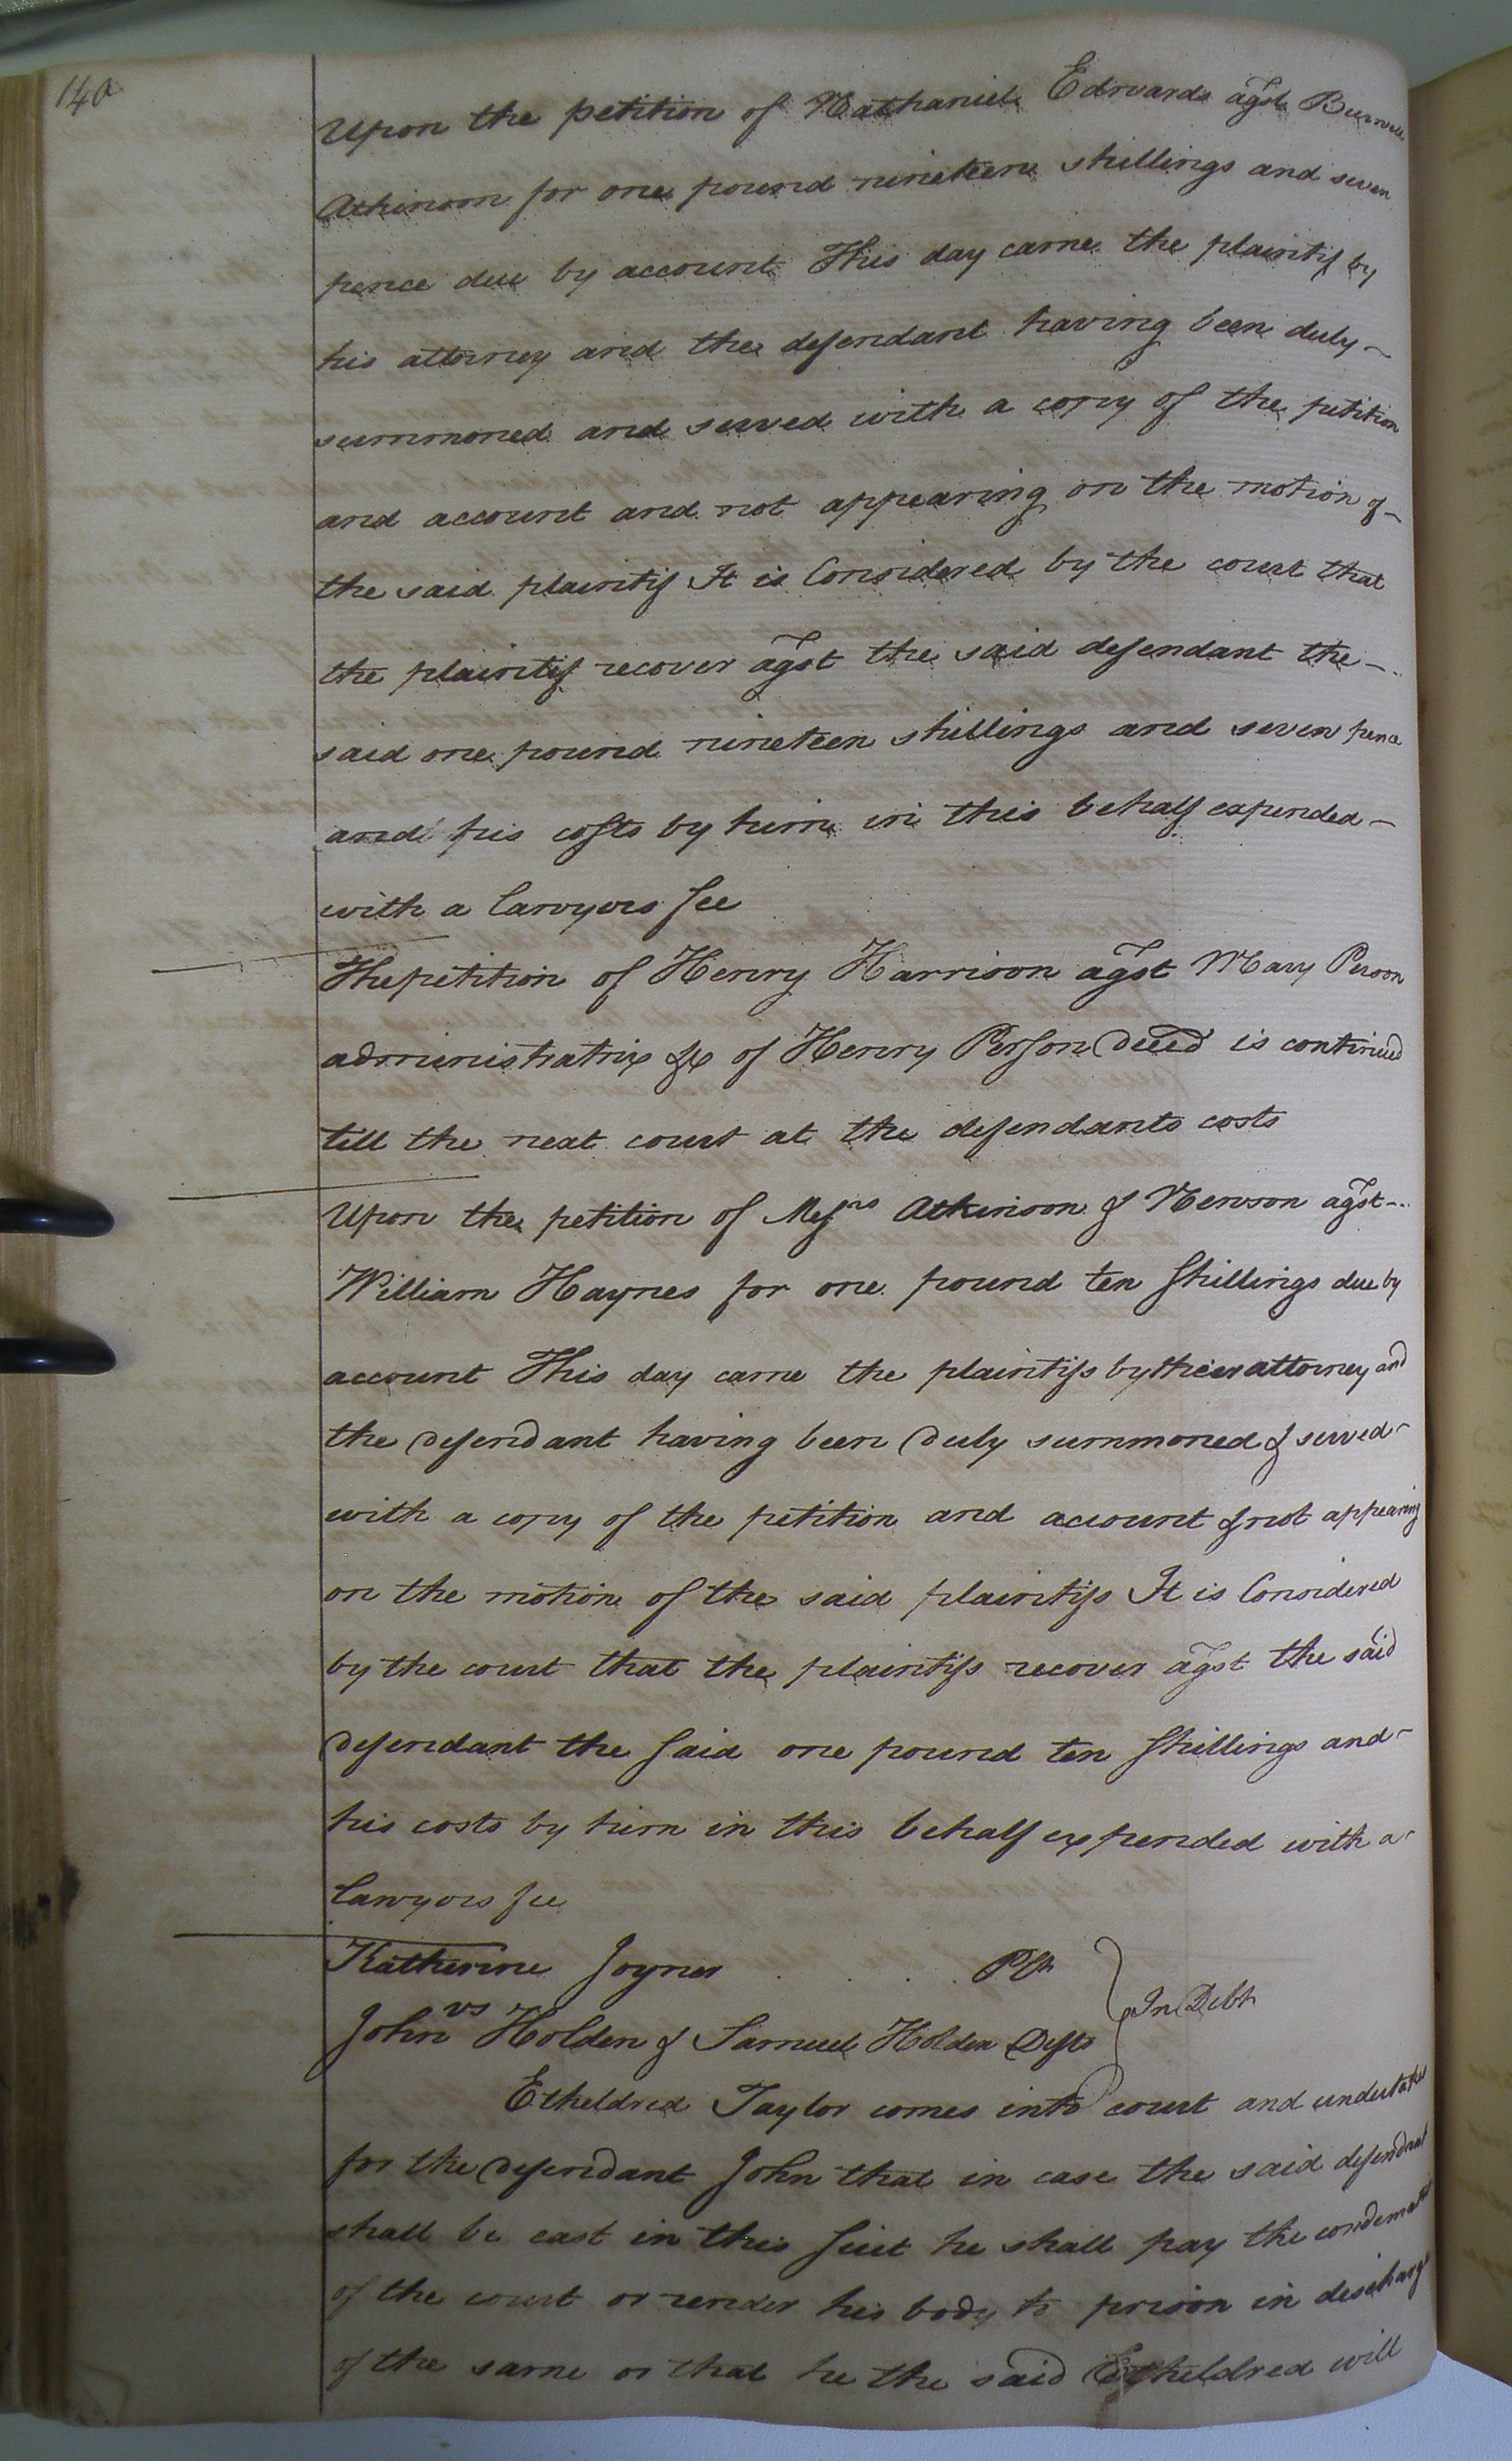 140
Upon the petition of Nathaniel Edwards agst Burwell
Atkinson for one pound nineteen shillings and seven
pence due by account This day came the plaintif by
his attorney and the defendant having been duly
summoned and served with a copy of the petition
and account and not appearing on the motion of
the said plaintif It is Considered by the court that
the plaintif recover agst the said defendant the
said one pound nineteen shillings and seven pence
and his costs by him in this behalf expended
with a Lawyers fee
The petition of Henry Harrison agst Mary Person
administratrix &c of Henry Person Deced is continued
till the next court at the defendants costs
Upon the petition of Messrs Atkinson & Newson agst
William Haynes for one pound ten Shillings due by
account This day came the plaintifs by their attorney and
the Defendant having been Duly summoned & served
with a copy of the petition and account & not appearing
on the motion of the said plaintifs It is Considered
by the court that the plaintifs recover agst the said
Defendant the said one pound ten Shillings and
his costs by him in this behalf expended with a
Lawyers fee
Katherine Joyner . . . . Plt
vs
In Debt
John Holden & Samuel Holden Defts
Etheldred Taylor comes into court and undertakes
for the Defendant John that in case the said defendant
shall be cast in this Suit he shall pay the condemnation
of the court or render his body to prison in discharge
of the same or that he the said Etheldred will